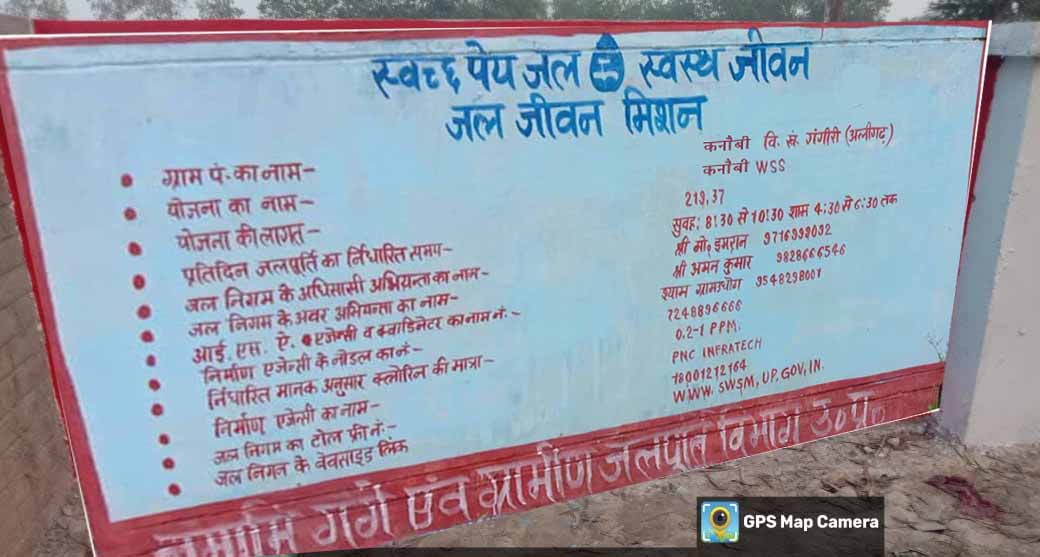 स्वच्छ पेय जल स्वस्थ जीवन
जल जीवन मिशन
ग्राम पं. का नाम- कनौबी वि. खं. गंगीरी (अलीगढ़)
योजना का नाम- कनौबी WSS
योजना की लागत- 219,37
प्रतिदिन जलपूर्ति का निर्धारित समय- सुवह: 8:30 से 10:30 शाम 4:30 से 6:30 तक
जल निगम के अधिसासी अभियन्ता का नाम- श्री मो० इमरान 9716999092
जल निगम के अवर अभियन्ता का नाम- श्री अमन कुमार 9828666546
आई. एस. ऐ. एजेन्सी व क्वाडिनेटर का नाम नं.- श्याम ग्रामउधोग 9548298001
निर्माण एजेन्सी के नोडल का नं- 7248896666
निर्धारित मानक अनुसार क्लोरिन की मात्रा- 0.2-1 PPM.
निर्माण एजेन्सी का नाम- PNC INFRATECH
जल निगम का टोल फ्री नं:- 18001212164
जल निगल के वेवसाइड लिंक WWW. SWSM, UP, GOV, IN.
एंव ग्रामीण जलपूर्ति विभाग उ०प्र०
GPS Map Camera